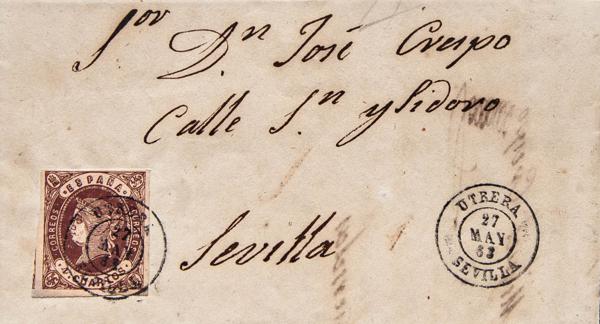 Sor Dn José Crespo
Calle Sn ysidoro
Sevilla
ESPAÑA
CORREOS
4 CUARTOS
UTRERA
27
MAY
63
SEVILLA